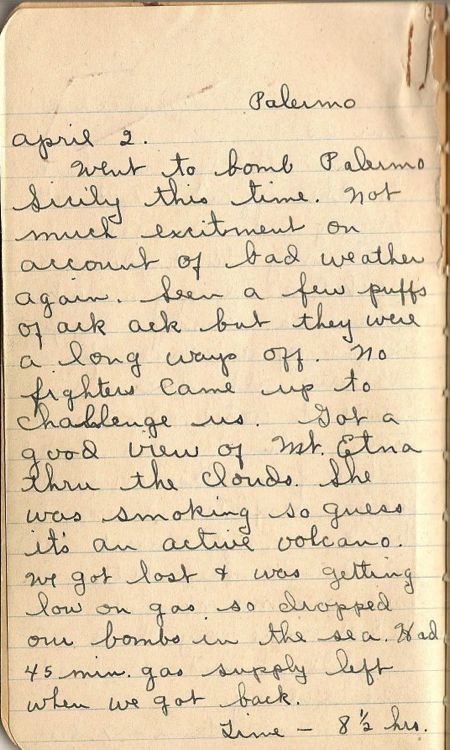 Palermo
April 2.
Went to bomb Palermo
Sicily this time. Not
much excitment on
account of bad weather
again. Seen a few puffs
of ack ack but they were
a long ways off. No
fighters came up to
challenge us. Got a
good view of Mt. Etna
thru the clouds. She
was smoking so guess
it's an active volcano.
We got lost & was getting
low on gas so dropped
our bombs in the sea. Had
45 min. gas supply left
when we got back.
Time - 8 ½ hrs.